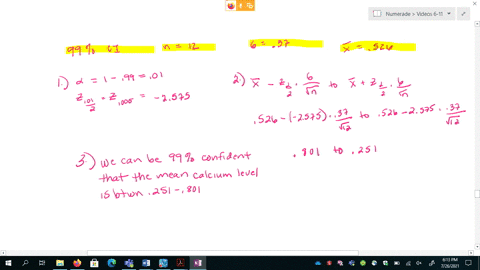 Numerade > Videos 6-11
99% CI
n = 12
6 = .37
x̄ = .526
1.) α = 1 - .99 = .01
z .01/2 = z .005 = -2.575
2.) x̄ - z α/2 · 6/√n to x̄ + z α/2 · 6/√n
.526 - (-2.575) · .37/√12 to .526 - 2.575 · .37/√12
.801 to .251
3.) we can be 99% confident
that the mean calcium level
is btwn .251 - .801
8:13 PM
7/26/2021